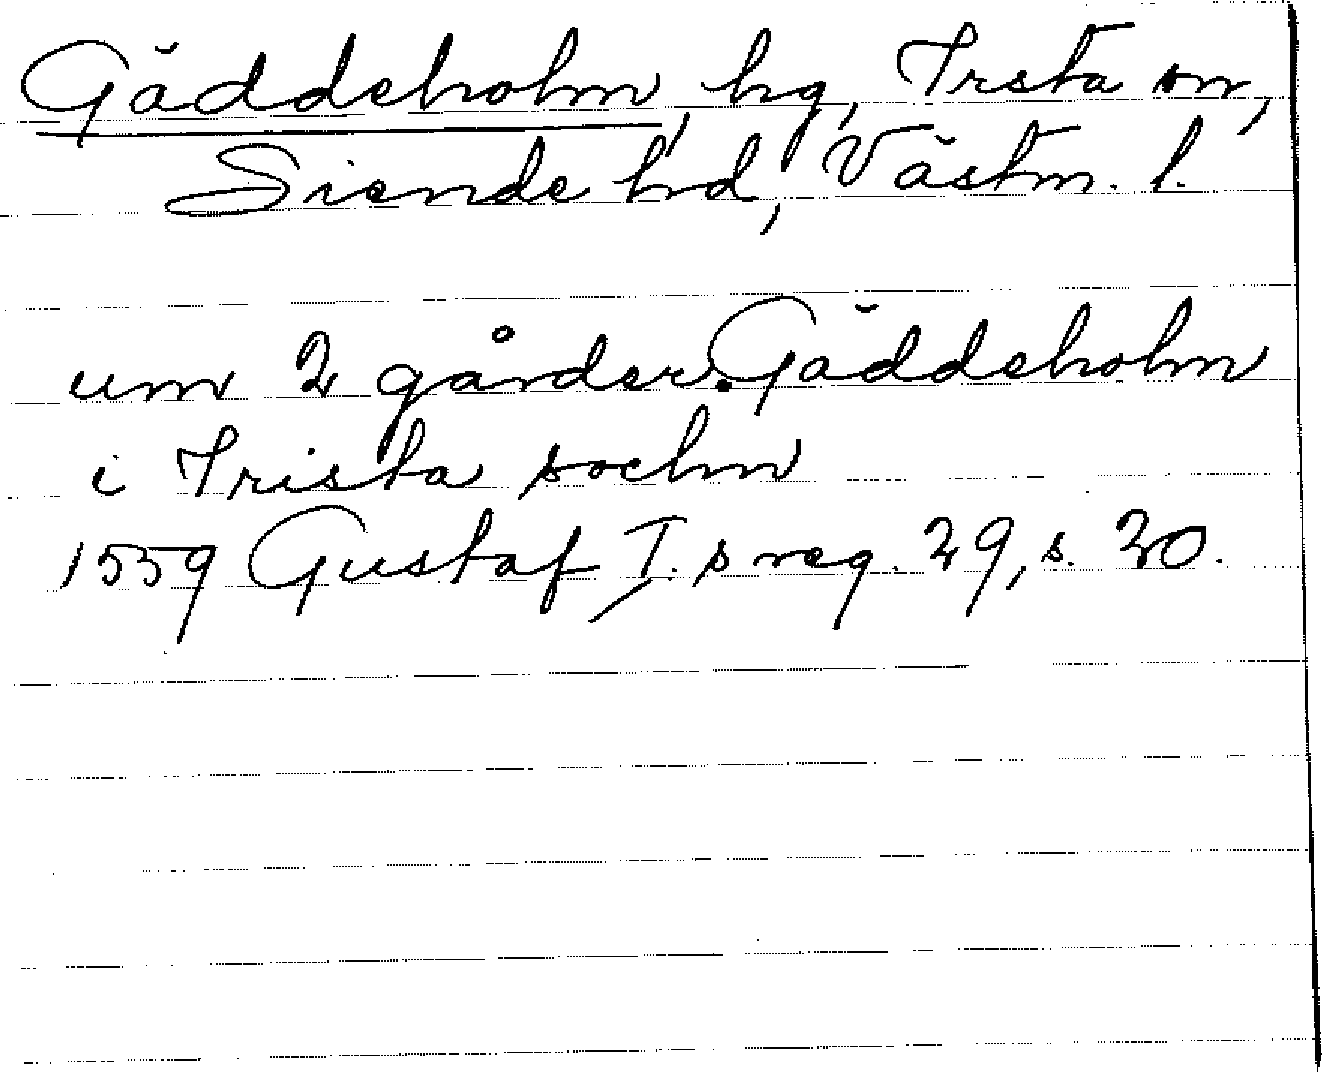 Gäddeholm, hg, Irsta sn,
Siende hd, Västm. l.
um 2 gårder. Gäddeholm
i Irista sochn
1559 Gustaf I. s reg. 29, s. 20.